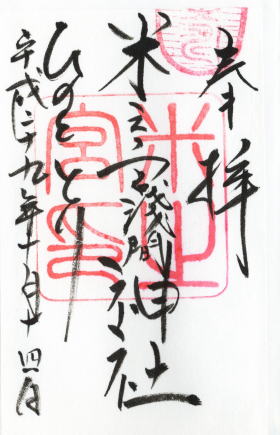 奉拝
米之宮淺間神社
ひのととり
平成二九年十月十四日
米之
宮印